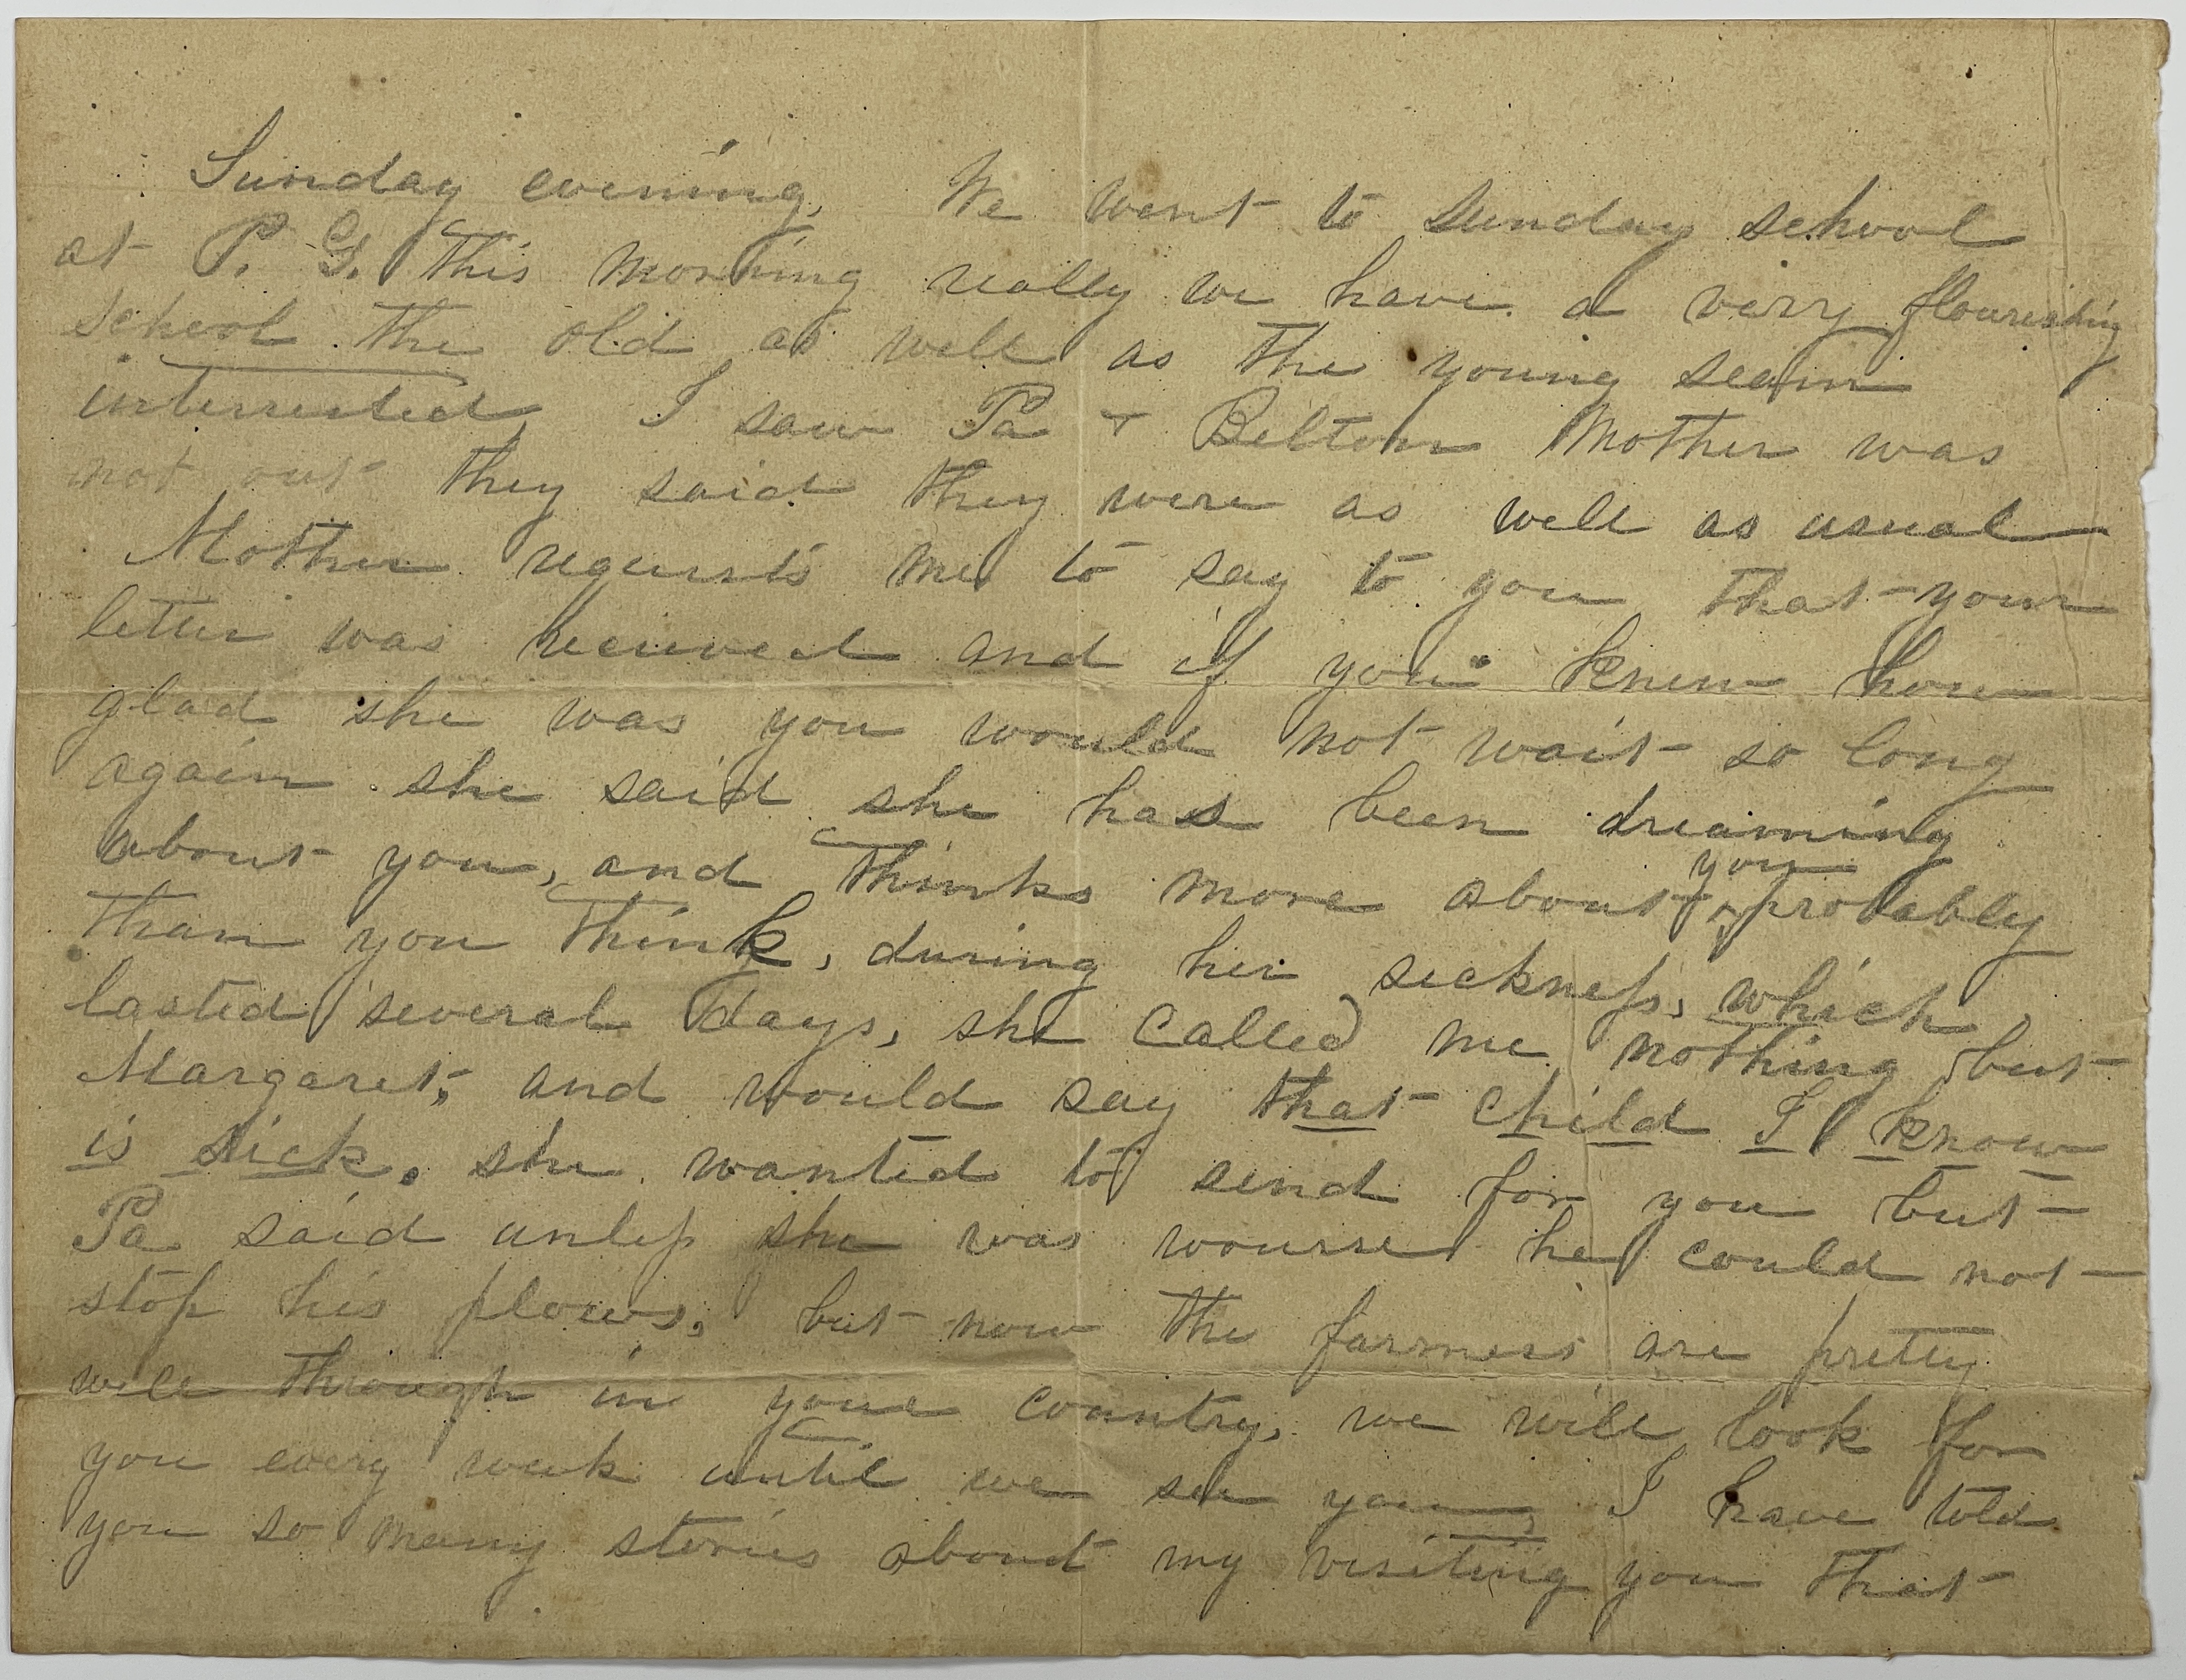 Sunday evening, We went to Sunday school
at P. G. this morning really we have a very flourishing
school the old as well as the young seam
interrested, I saw Pa + Belton Mother was
not out they said they were as well as usual
Mother requests me to say to you that your
letter was received and if you knew how
glad she was you would not wait so long
again she said she has been dreaming
about you, and thinks more about you probably
than you think, during her sickness, which
lasted several days, she called me nothing but
Margaret, and would say that child I know
is sick. she wanted to send for you but
Pa said unless she was wourse he could not
stop his plows, but now the farmers are pretty
well through in your country, we will look for
you every week until we see you, I have told
you so many stories about my visiting you that